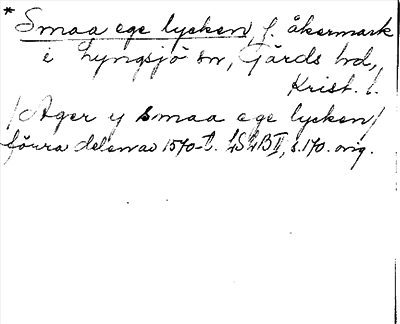 * Smaa ege lycken, f. åkermark
i Lyngsjö sn, Gärds hd,
Krist. l.
/Ager y smaa ege lycken/
förra delen av 1570-t. LSLB II, s. 170. orig.